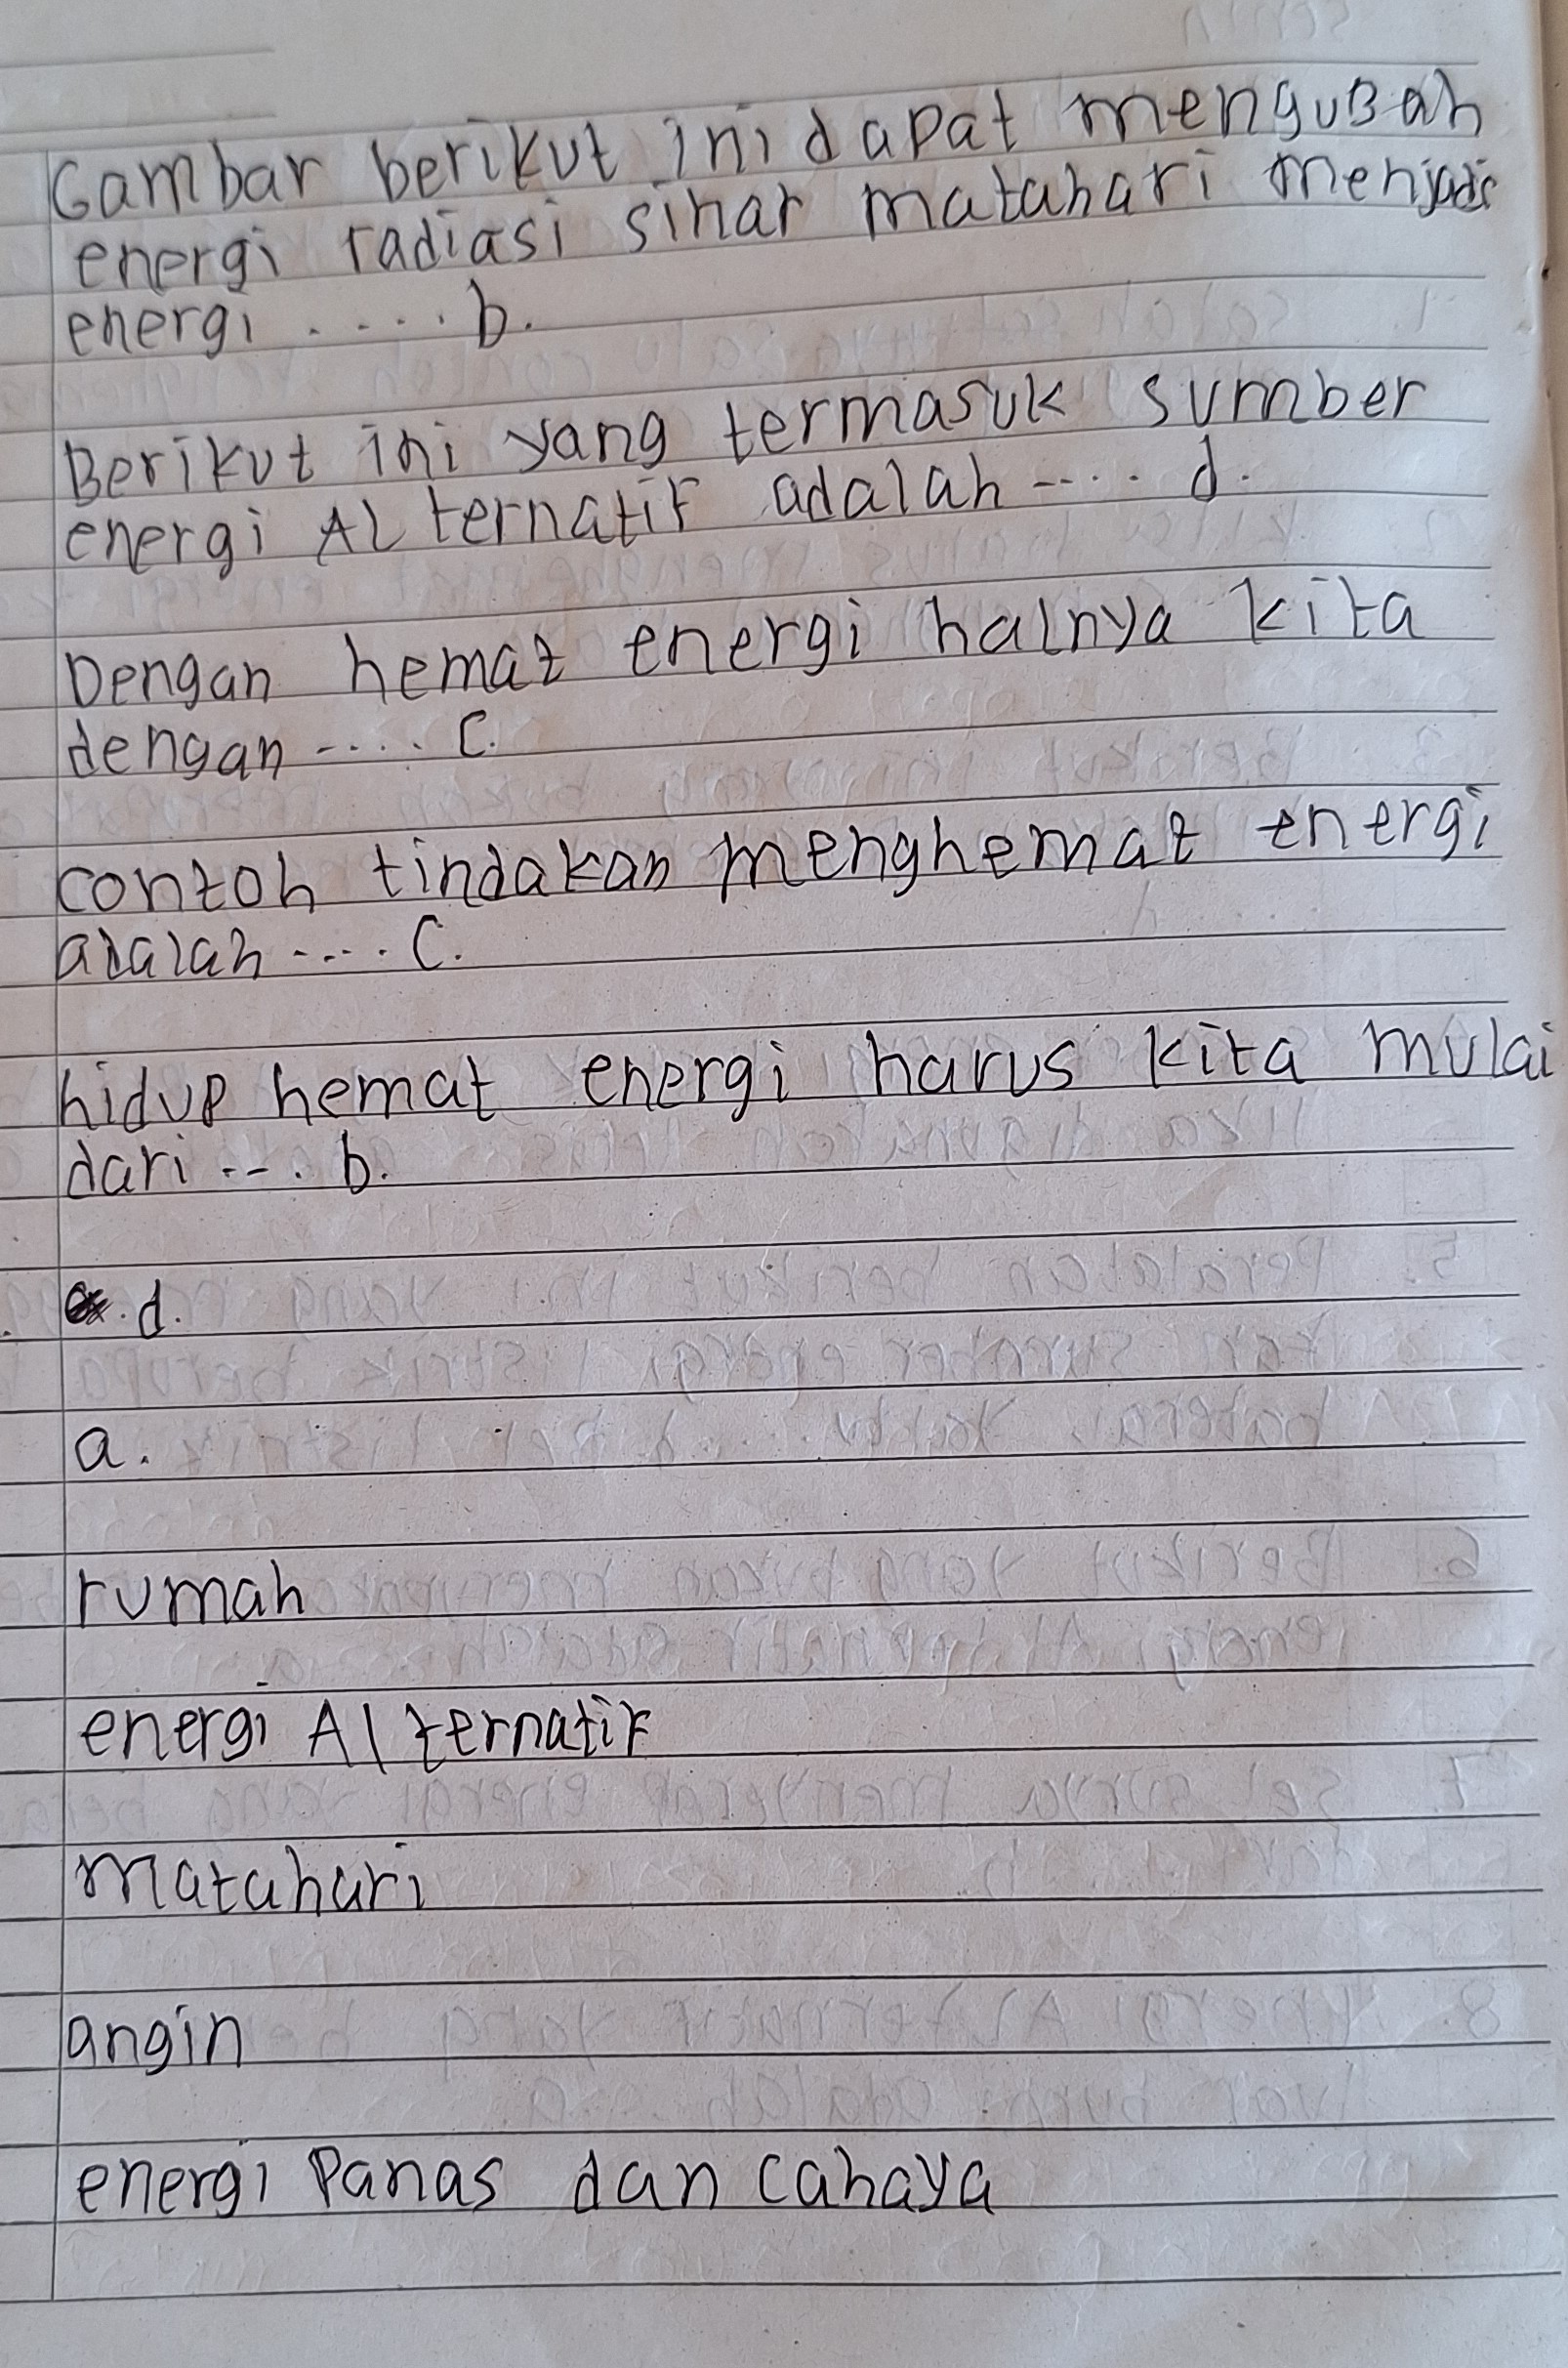 Gambar berikut ini dapat mengubah
energi radiasi sinar matahari menjadi
energi ..... b.
Berikut ini yang termasuk sumber
energi ALternatif adalah .... d.
Dengan hemat energi halnya kita
dengan ..... C.
contoh tindakan menghemat energi
adalah .... C.
hidup hemat energi harus kita mulai
dari .... b.
d.
a.
rumah
energi Alternatif
matahari
angin
energi Panas dan cahaya